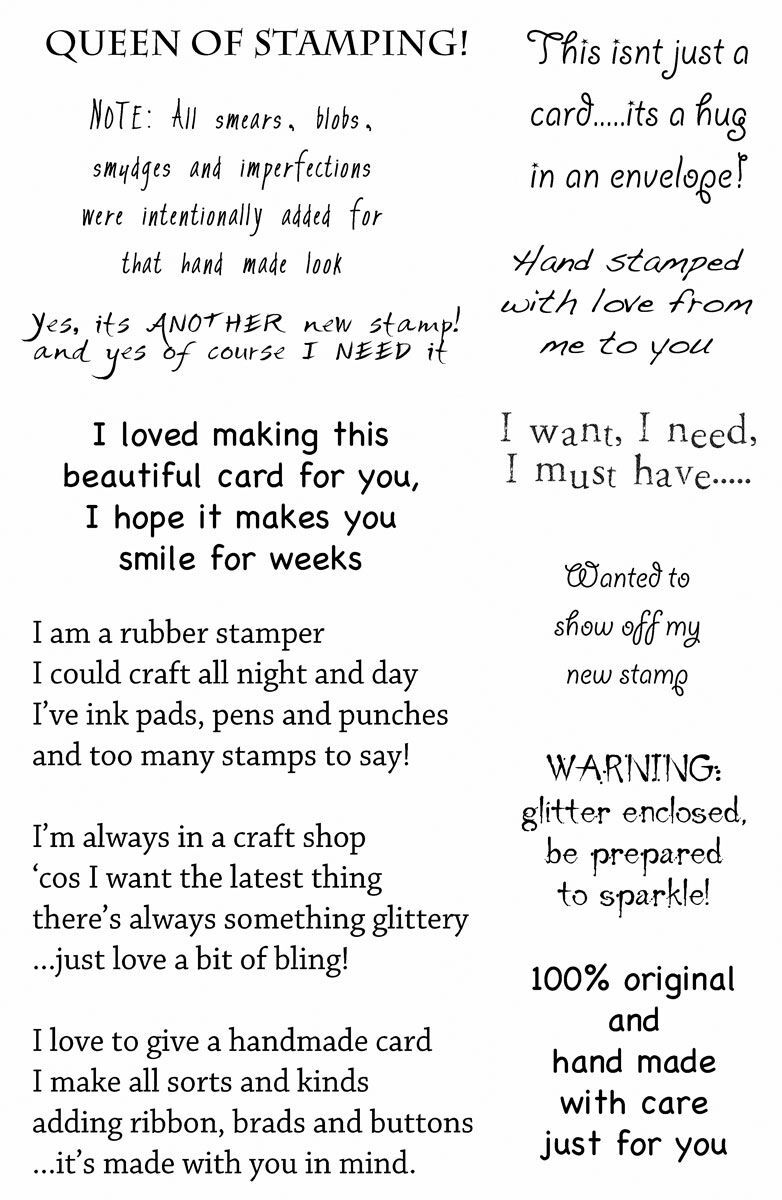 QUEEN OF STAMPING!
NOTE: All smears, blobs,
smudges and imperfections
were intentionally added for
that hand made look
Yes, its ANOTHER new stamp!
and yes of course I NEED it
I loved making this
beautiful card for you,
I hope it makes you
smile for weeks
I am a rubber stamper
I could craft all night and day
I’ve ink pads, pens and punches
and too many stamps to say!
I’m always in a craft shop
‘cos I want the latest thing
there’s always something glittery
...just love a bit of bling!
I love to give a handmade card
I make all sorts and kinds
adding ribbon, brads and buttons
...it’s made with you in mind.
This isnt just a
card.....its a hug
in an envelope!
Hand stamped
with love from
me to you
I want, I need,
I must have.....
Wanted to
show off my
new stamp
WARNING:
glitter enclosed,
be prepared
to sparkle!
100% original
and
hand made
with care
just for you